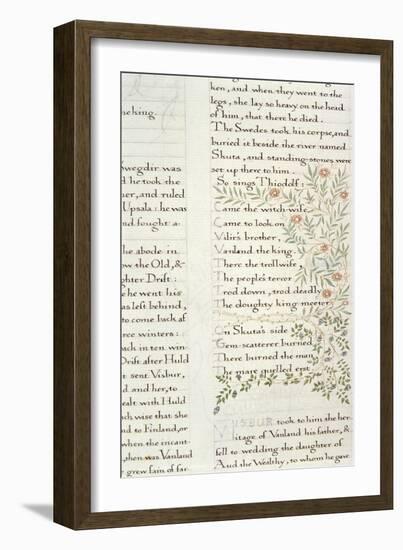 he king.
Swegdir was
he took the
her, and ruled
Upsala: he was
and fought a-
he abode in
ow the Old, &
ghter Drift:
e he went his
as left behind,
to come back af
ree winters:
ack in ten win-
Drift after Huld
t sent Visbur,
d and her, to
dealt with Huld
ch wise that she
nd to Finland, or
when the incant-
, then was Vanland
grew fain of far
ken, and when they went to the
legs, she lay so heavy on the head
of him, that there he died.
The Swedes took his corpse, and
buried it beside the river named
Skuta, and standing-stones were
set up there to him.
So sings Thiodolf:
Came the witch-wife
Came to look on
Vilir's brother,
Vanland the king.
There the trollwife,
The people's terror
Trod down, trod deadly
The doughty king meeter.
On Skuta's side
Gem-scatterer burned
There burned the man
The mare quelled erst.
VISBUR took to him the her
itage of Vanland his father, &
fell to wedding the daughter of
Aud the Wealthy, to whom he gave